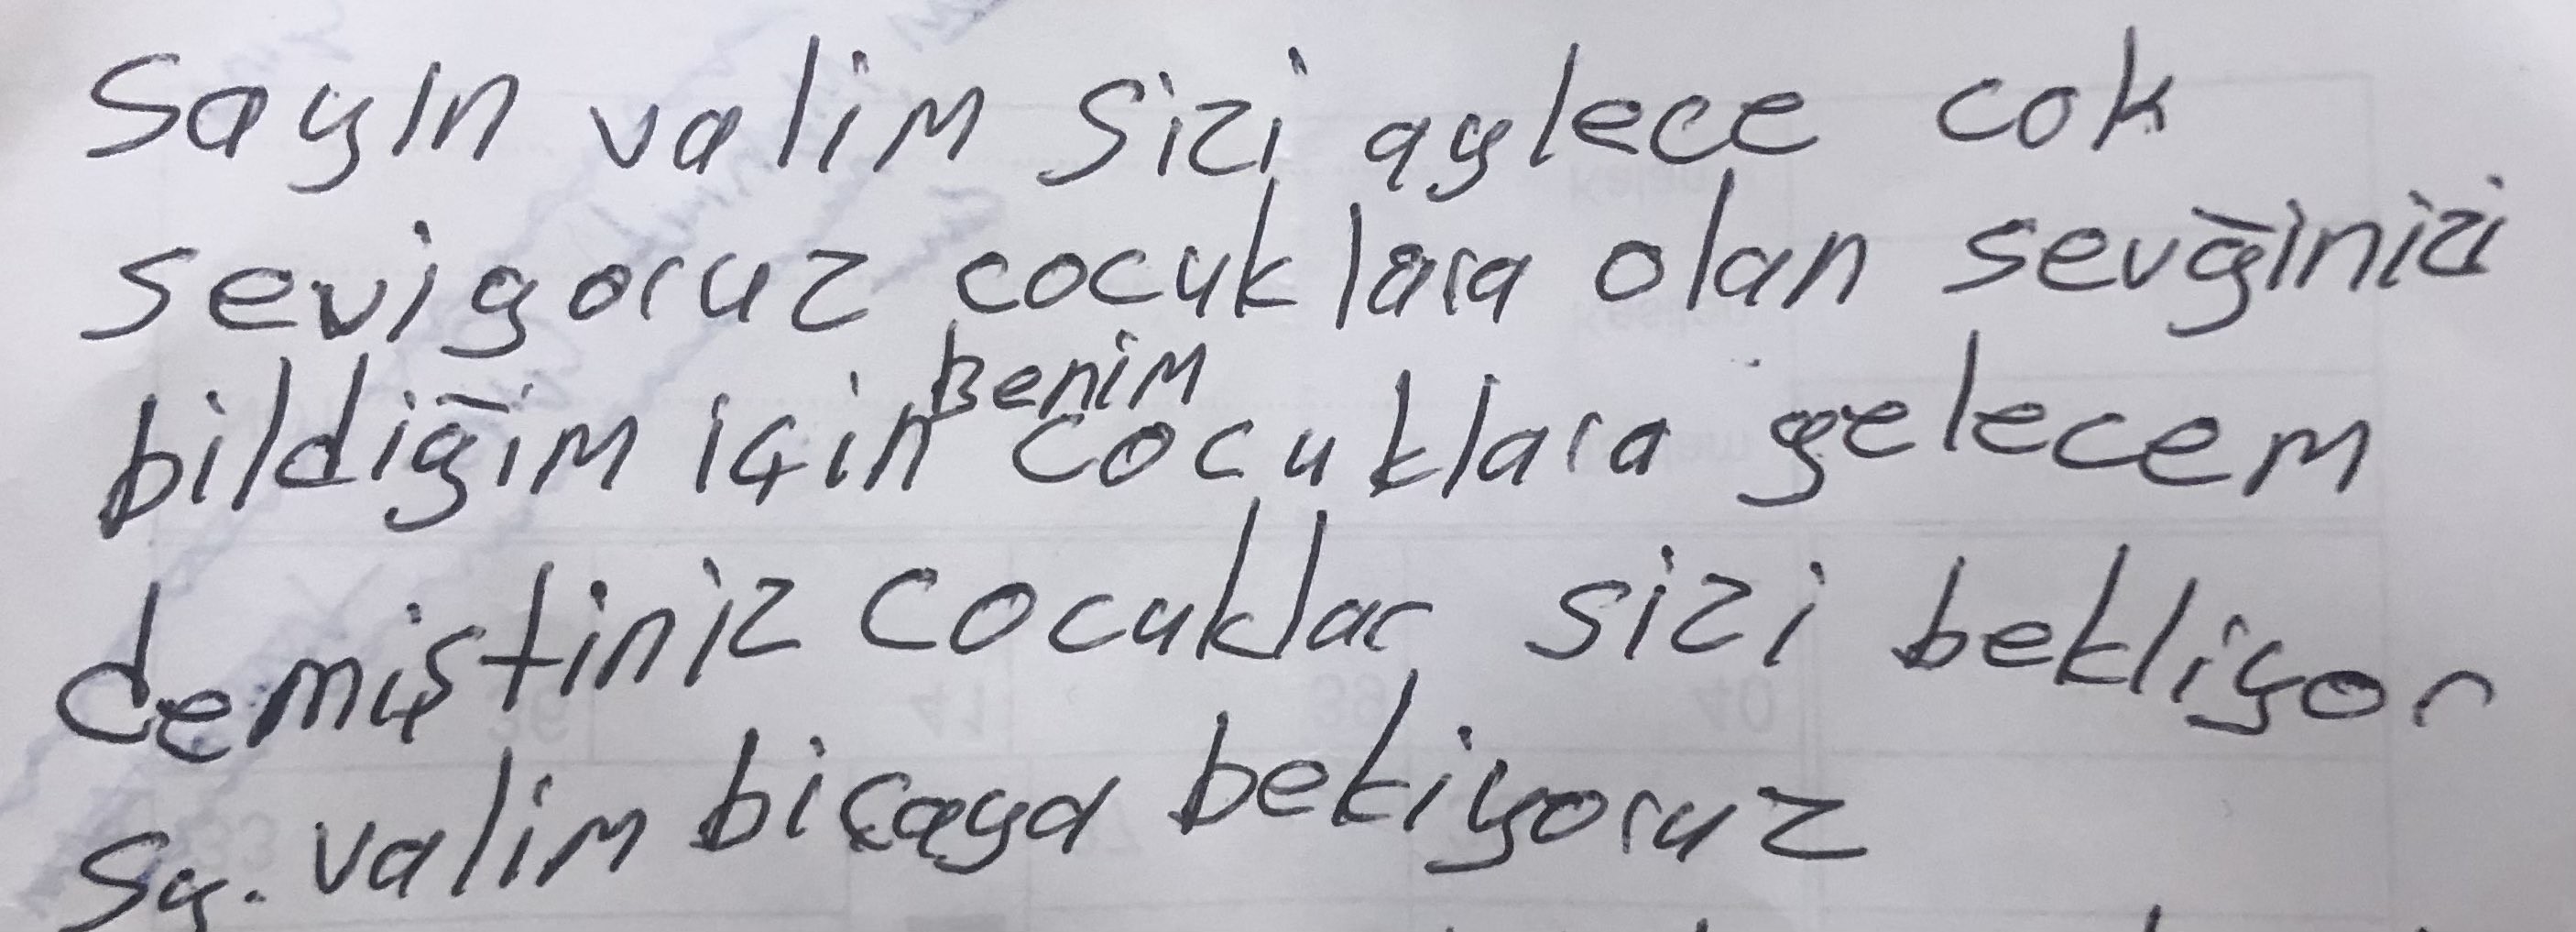 Sayın valim sizi aylece cok
seviyoruz cocuklara olan sevğinizi
bildiğim için Benim cocuklara gelecem
demiştiniz cocuklar sizi bekliyor
Sy. valim biçaya bekiyoruz